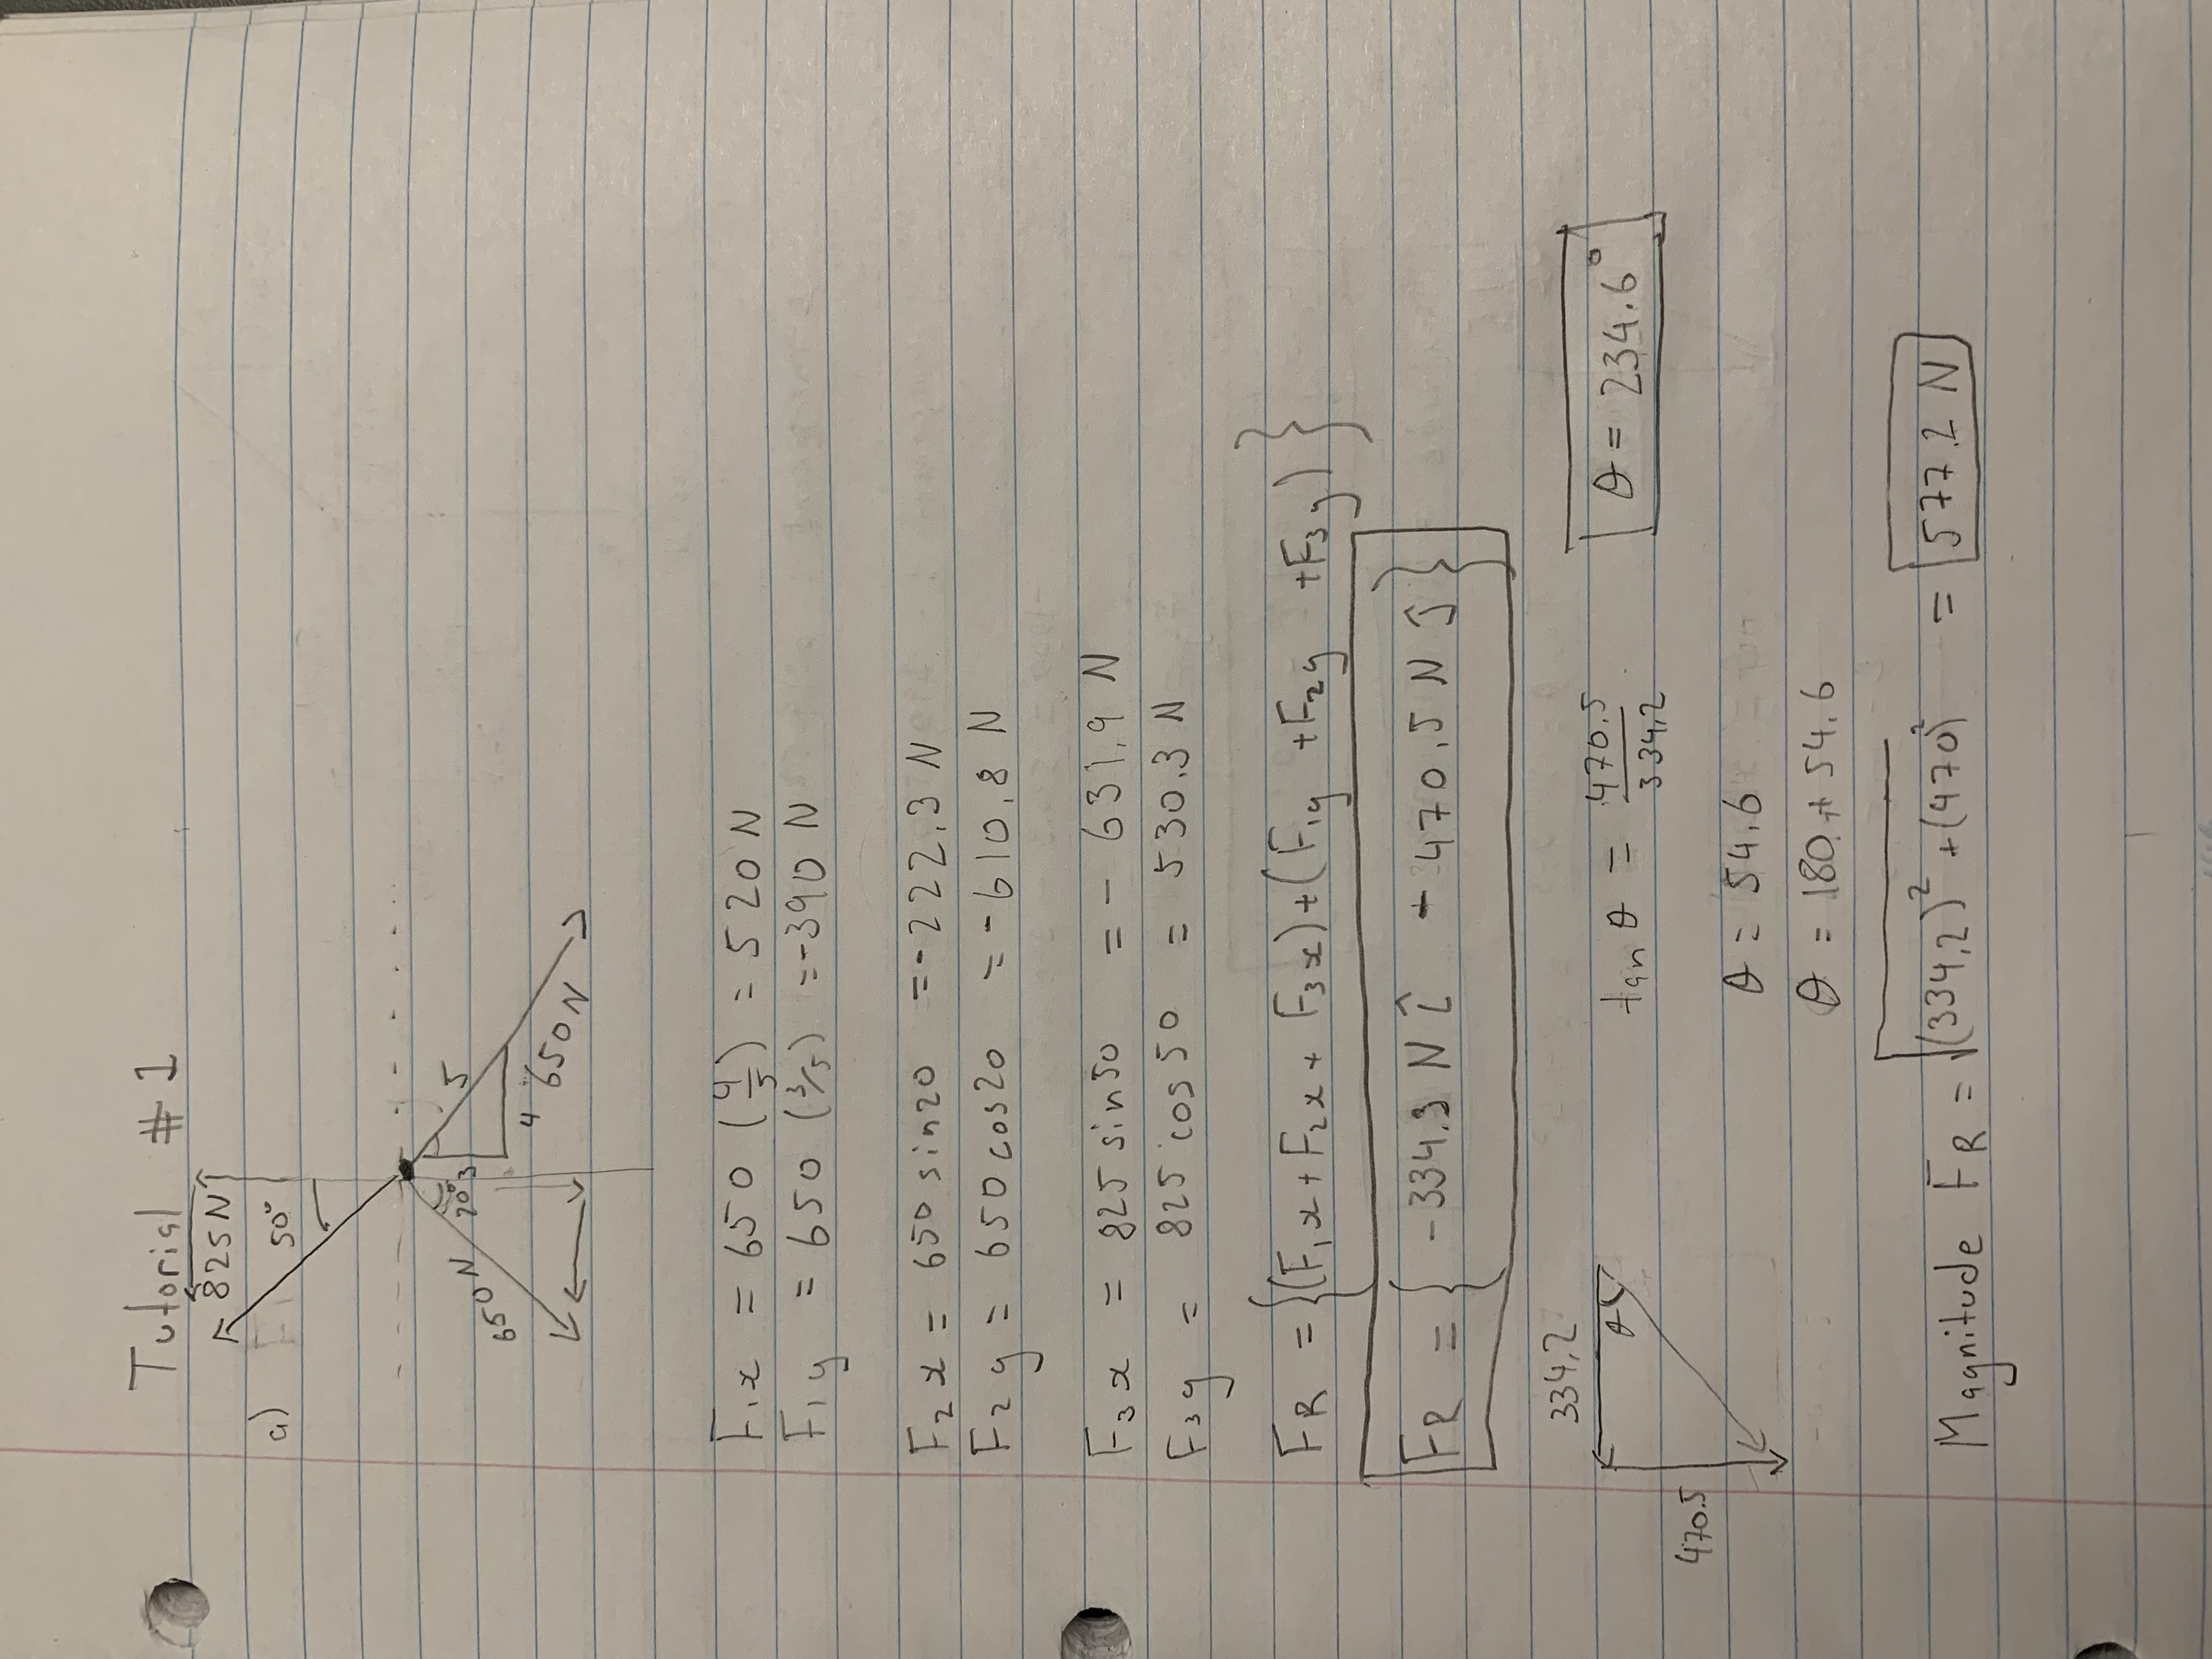 Tutorial #1
825N
a)
50°
650N 20° 3 5
4 650N
F₁x = 650 (4/5) = 520 N
F₁y = 650 (3/5) = -390 N
F₂x = 650 sin20 = -222.3 N
F₂y = 650 cos20 = -610.8 N
F₃x = 825 sin50 = - 631.9 N
F₃y = 825 cos50 = 530.3 N
FR = {(F₁x + F₂x + F₃x) + (F₁y + F₂y + F₃y)}
FR = { -334.3 N î - 470.5 N ĵ }
334.2
θ tan θ = 470.5/334.2 θ = 234.6°
470.5
θ = 54.6
θ = 180 + 54.6
Magnitude FR = √(334.2)² + (470)² = 577.2 N